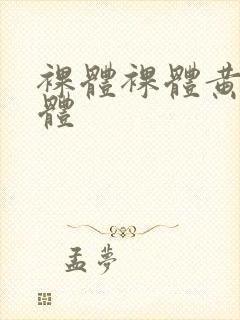 裸體裸體黄
體
孟夢